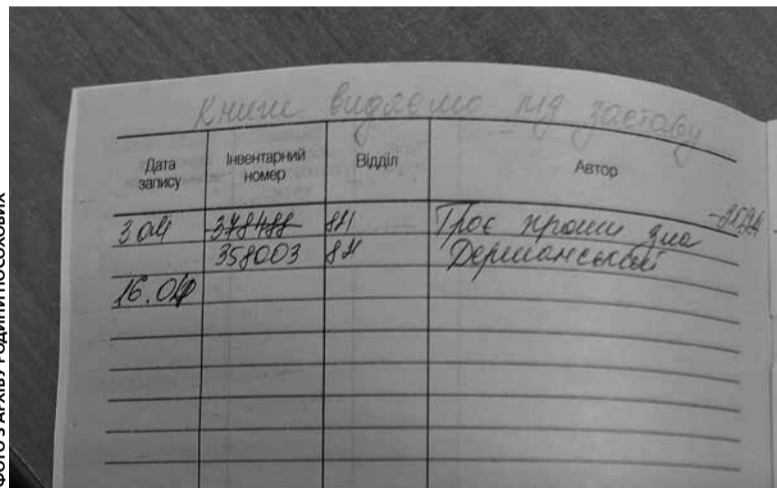 ФОТО З АРХІВУ РОДИНИ ПОСОХОВИХ
Книги видаємо під заставу
Дата запису Інвентарний номер Відділ Автор
3 04 378488 84 Троє проти зла
358003 84 Дерманський
16.04